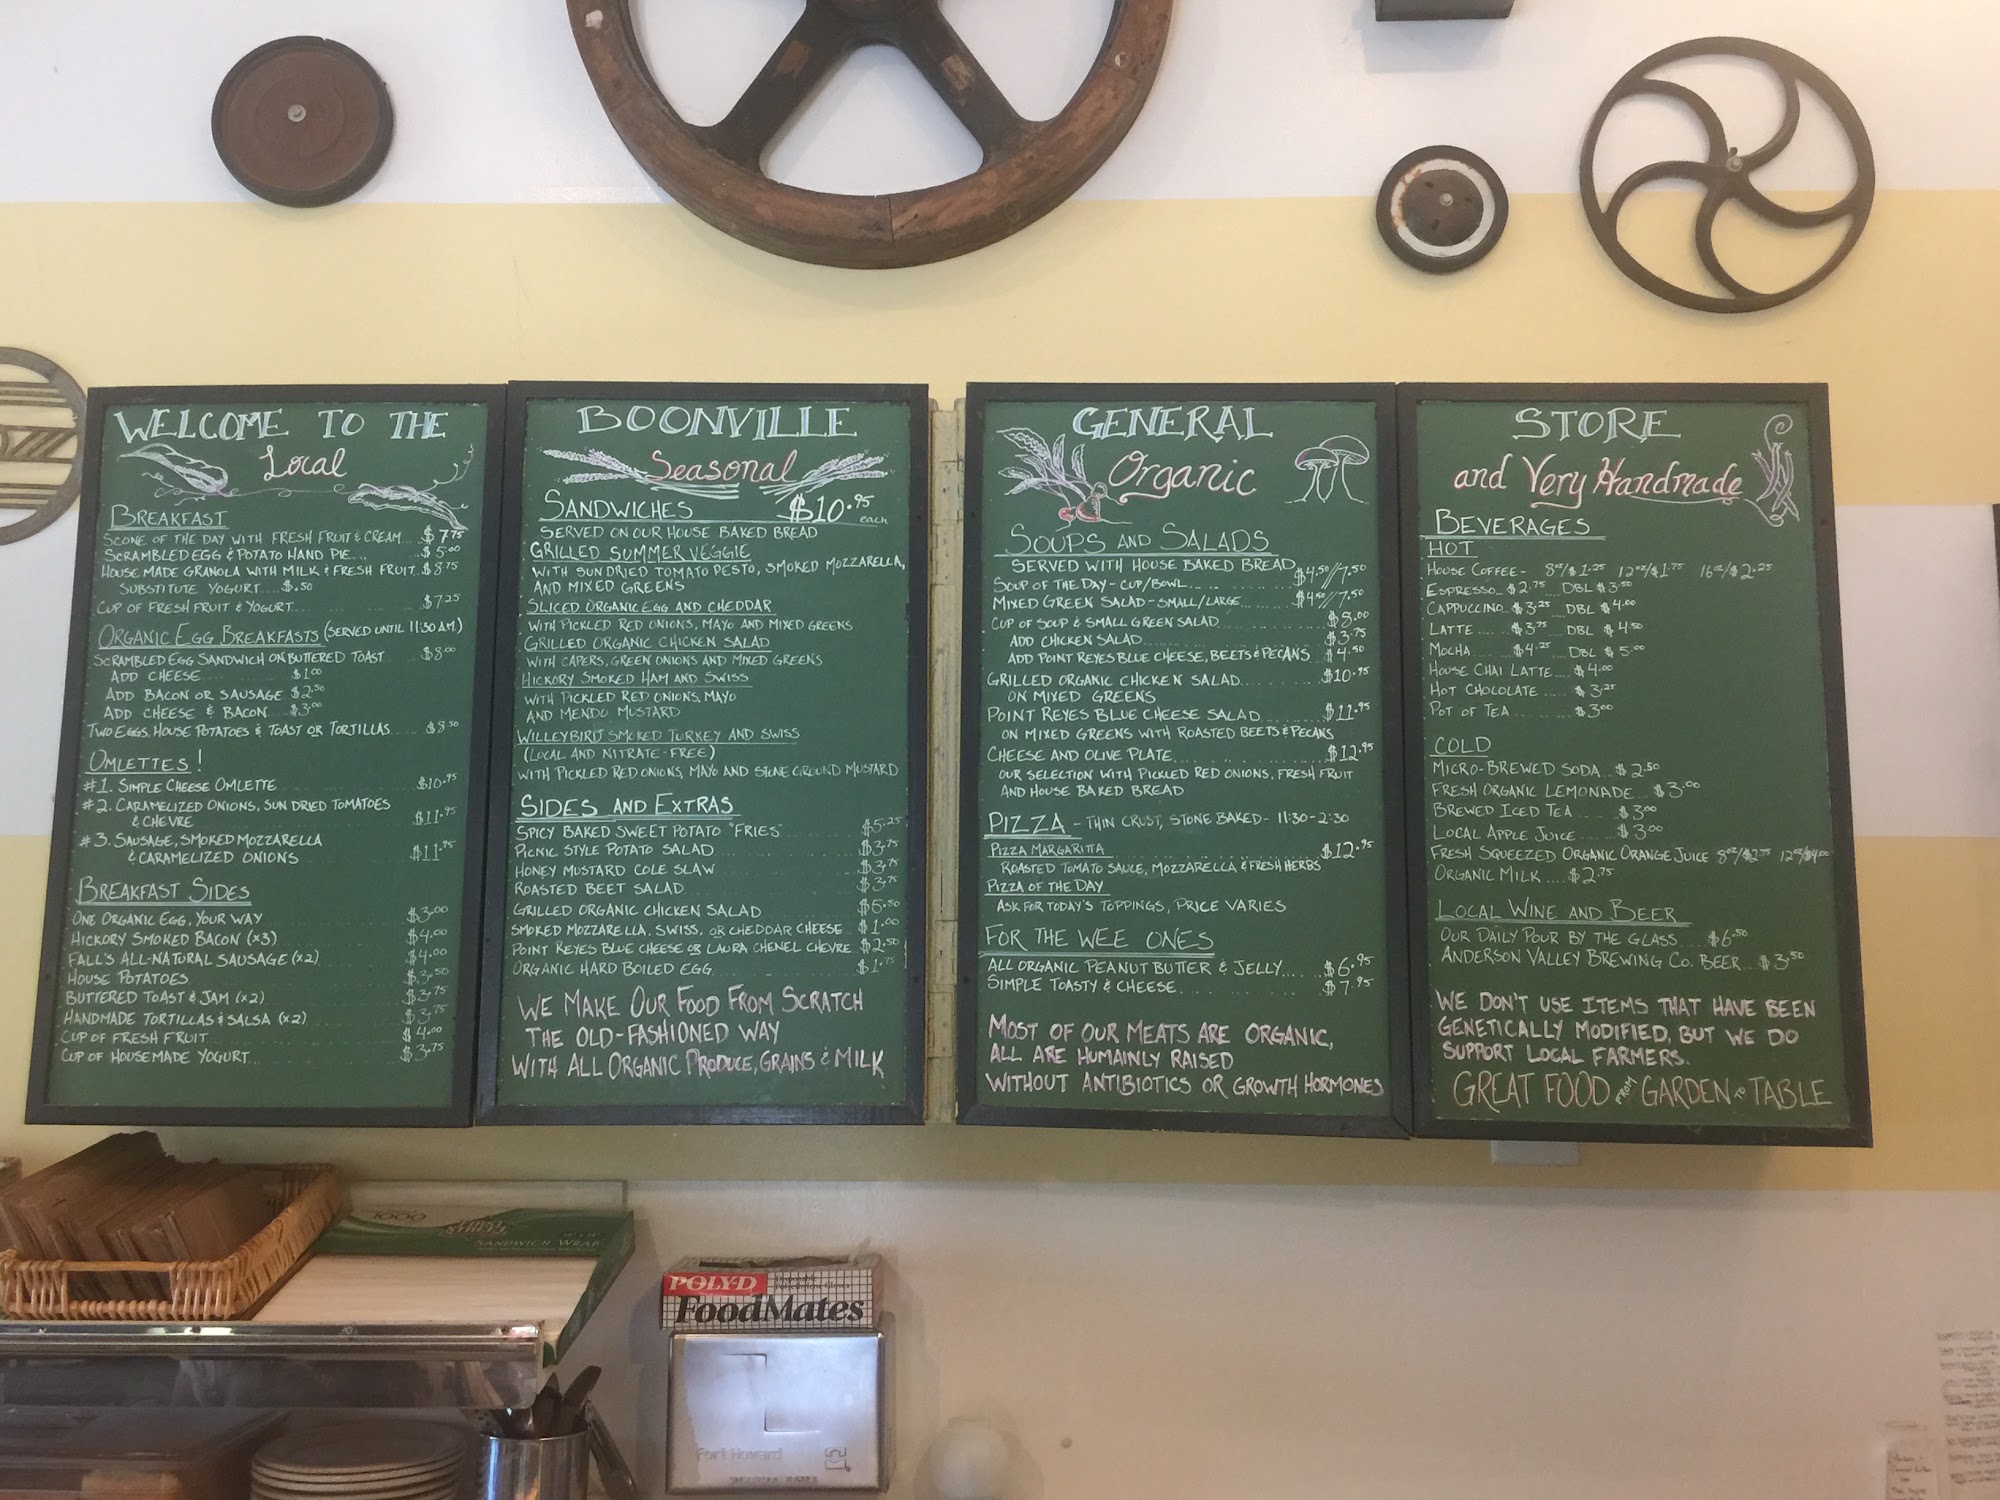 WELCOME TO THE
Local
BREAKFAST
SCONE OF THE DAY WITH FRESH FRUIT & CREAM... $7.75
SCRAMBLED EGG & POTATO HAND PIE... $5.00
HOUSE MADE GRANOLA WITH MILK & FRESH FRUIT.. $8.75
SUBSTITUTE YOGURT.... $.50
CUP OF FRESH FRUIT & YOGURT... $7.25
ORGANIC EGG BREAKFASTS (SERVED UNTIL 11:30 A.M.)
SCRAMBLED EGG SANDWICH ON BUTTERED TOAST... $8.00
ADD CHEESE... $1.00
ADD BACON OR SAUSAGE $2.50
ADD CHEESE & BACON... $3.00
TWO EGGS, HOUSE POTATOES & TOAST OR TORTILLAS... $8.50
OMLETTES!
#1. SIMPLE CHEESE OMLETTE $10.95
#2. CARAMELIZED ONIONS, SUN DRIED TOMATOES
& CHEVRE $11.95
#3. SAUSAGE, SMOKED MOZZARELLA
& CARAMELIZED ONIONS $11.95
BREAKFAST SIDES
ONE ORGANIC EGG, YOUR WAY $3.00
HICKORY SMOKED BACON (x3) $4.00
FALL'S ALL-NATURAL SAUSAGE (x2) $4.00
HOUSE POTATOES $3.50
BUTTERED TOAST & JAM (x2) $3.75
HANDMADE TORTILLAS & SALSA (x2) $3.75
CUP OF FRESH FRUIT $4.00
CUP OF HOUSEMADE YOGURT $3.75
BOONVILLE
Seasonal
SANDWICHES $10.95 each
SERVED ON OUR HOUSE BAKED BREAD
GRILLED SUMMER VEGGIE
WITH SUN DRIED TOMATO PESTO, SMOKED MOZZARELLA,
AND MIXED GREENS
SLICED ORGANIC EGG AND CHEDDAR
WITH PICKLED RED ONIONS, MAYO AND MIXED GREENS
GRILLED ORGANIC CHICKEN SALAD
WITH CAPERS, GREEN ONIONS AND MIXED GREENS
HICKORY SMOKED HAM AND SWISS
WITH PICKLED RED ONIONS, MAYO
AND MENDO MUSTARD
WILLEYBIRD SMOKED TURKEY AND SWISS
(LOCAL AND NITRATE-FREE)
WITH PICKLED RED ONIONS, MAYO AND STONE GROUND MUSTARD
SIDES AND EXTRAS
SPICY BAKED SWEET POTATO "FRIES" $5.25
PICNIC STYLE POTATO SALAD $3.75
HONEY MUSTARD COLE SLAW $3.75
ROASTED BEET SALAD $3.75
GRILLED ORGANIC CHICKEN SALAD $5.50
SMOKED MOZZARELLA, SWISS, OR CHEDDAR CHEESE $1.00
POINT REYES BLUE CHEESE OR LAURA CHENEL CHEVRE $2.50
ORGANIC HARD BOILED EGG $1.75
WE MAKE OUR FOOD FROM SCRATCH
THE OLD-FASHIONED WAY
WITH ALL ORGANIC PRODUCE, GRAINS & MILK
GENERAL
Organic
SOUPS AND SALADS
SERVED WITH HOUSE BAKED BREAD
SOUP OF THE DAY - CUP/BOWL... $4.50//7.50
MIXED GREEN SALAD - SMALL/LARGE... $4.50//7.50
CUP OF SOUP & SMALL GREEN SALAD $8.00
ADD CHICKEN SALAD $3.75
ADD POINT REYES BLUE CHEESE, BEETS & PECANS $4.50
GRILLED ORGANIC CHICKEN SALAD... $10.95
ON MIXED GREENS
POINT REYES BLUE CHEESE SALAD $11.95
ON MIXED GREENS WITH ROASTED BEETS & PECANS
CHEESE AND OLIVE PLATE $12.95
OUR SELECTION WITH PICKLED RED ONIONS, FRESH FRUIT
AND HOUSE BAKED BREAD
PIZZA - THIN CRUST, STONE BAKED - 11:30-2:30
PIZZA MARGARITA $12.95
ROASTED TOMATO SAUCE, MOZZARELLA & FRESH HERBS
PIZZA OF THE DAY
ASK FOR TODAY'S TOPPINGS, PRICE VARIES
FOR THE WEE ONES
ALL ORGANIC PEANUT BUTTER & JELLY.... $6.95
SIMPLE TOASTY & CHEESE $7.95
MOST OF OUR MEATS ARE ORGANIC,
ALL ARE HUMAINLY RAISED
WITHOUT ANTIBIOTICS OR GROWTH HORMONES
STORE
and Very Handmade
BEVERAGES
HOT
HOUSE COFFEE - 8oz/$1.25 12oz/$1.75 16oz/$2.25
ESPRESSO.. $2.75 DBL $3.50
CAPPUCCINO.. $3.25 DBL $4.00
LATTE .... $3.75 DBL $4.50
MOCHA $4.25 DBL $5.00
HOUSE CHAI LATTE.. $4.00
HOT CHOCOLATE .... $3.25
POT OF TEA.... $3.00
COLD
MICRO-BREWED SODA.. $2.50
FRESH ORGANIC LEMONADE... $3.00
BREWED ICED TEA ... $3.00
LOCAL APPLE JUICE.... $3.00
FRESH SQUEEZED ORGANIC ORANGE JUICE 8oz/$2.75 12oz/$4.00
ORGANIC MILK .... $2.75
LOCAL WINE AND BEER
OUR DAILY POUR BY THE GLASS.... $6.50
ANDERSON VALLEY BREWING CO. BEER.. $3.50
WE DON'T USE ITEMS THAT HAVE BEEN
GENETICALLY MODIFIED, BUT WE DO
SUPPORT LOCAL FARMERS.
GREAT FOOD FROM GARDEN TO TABLE
1000
SANDWICH WRAP
POLY-D
FoodMates
Fort Howard